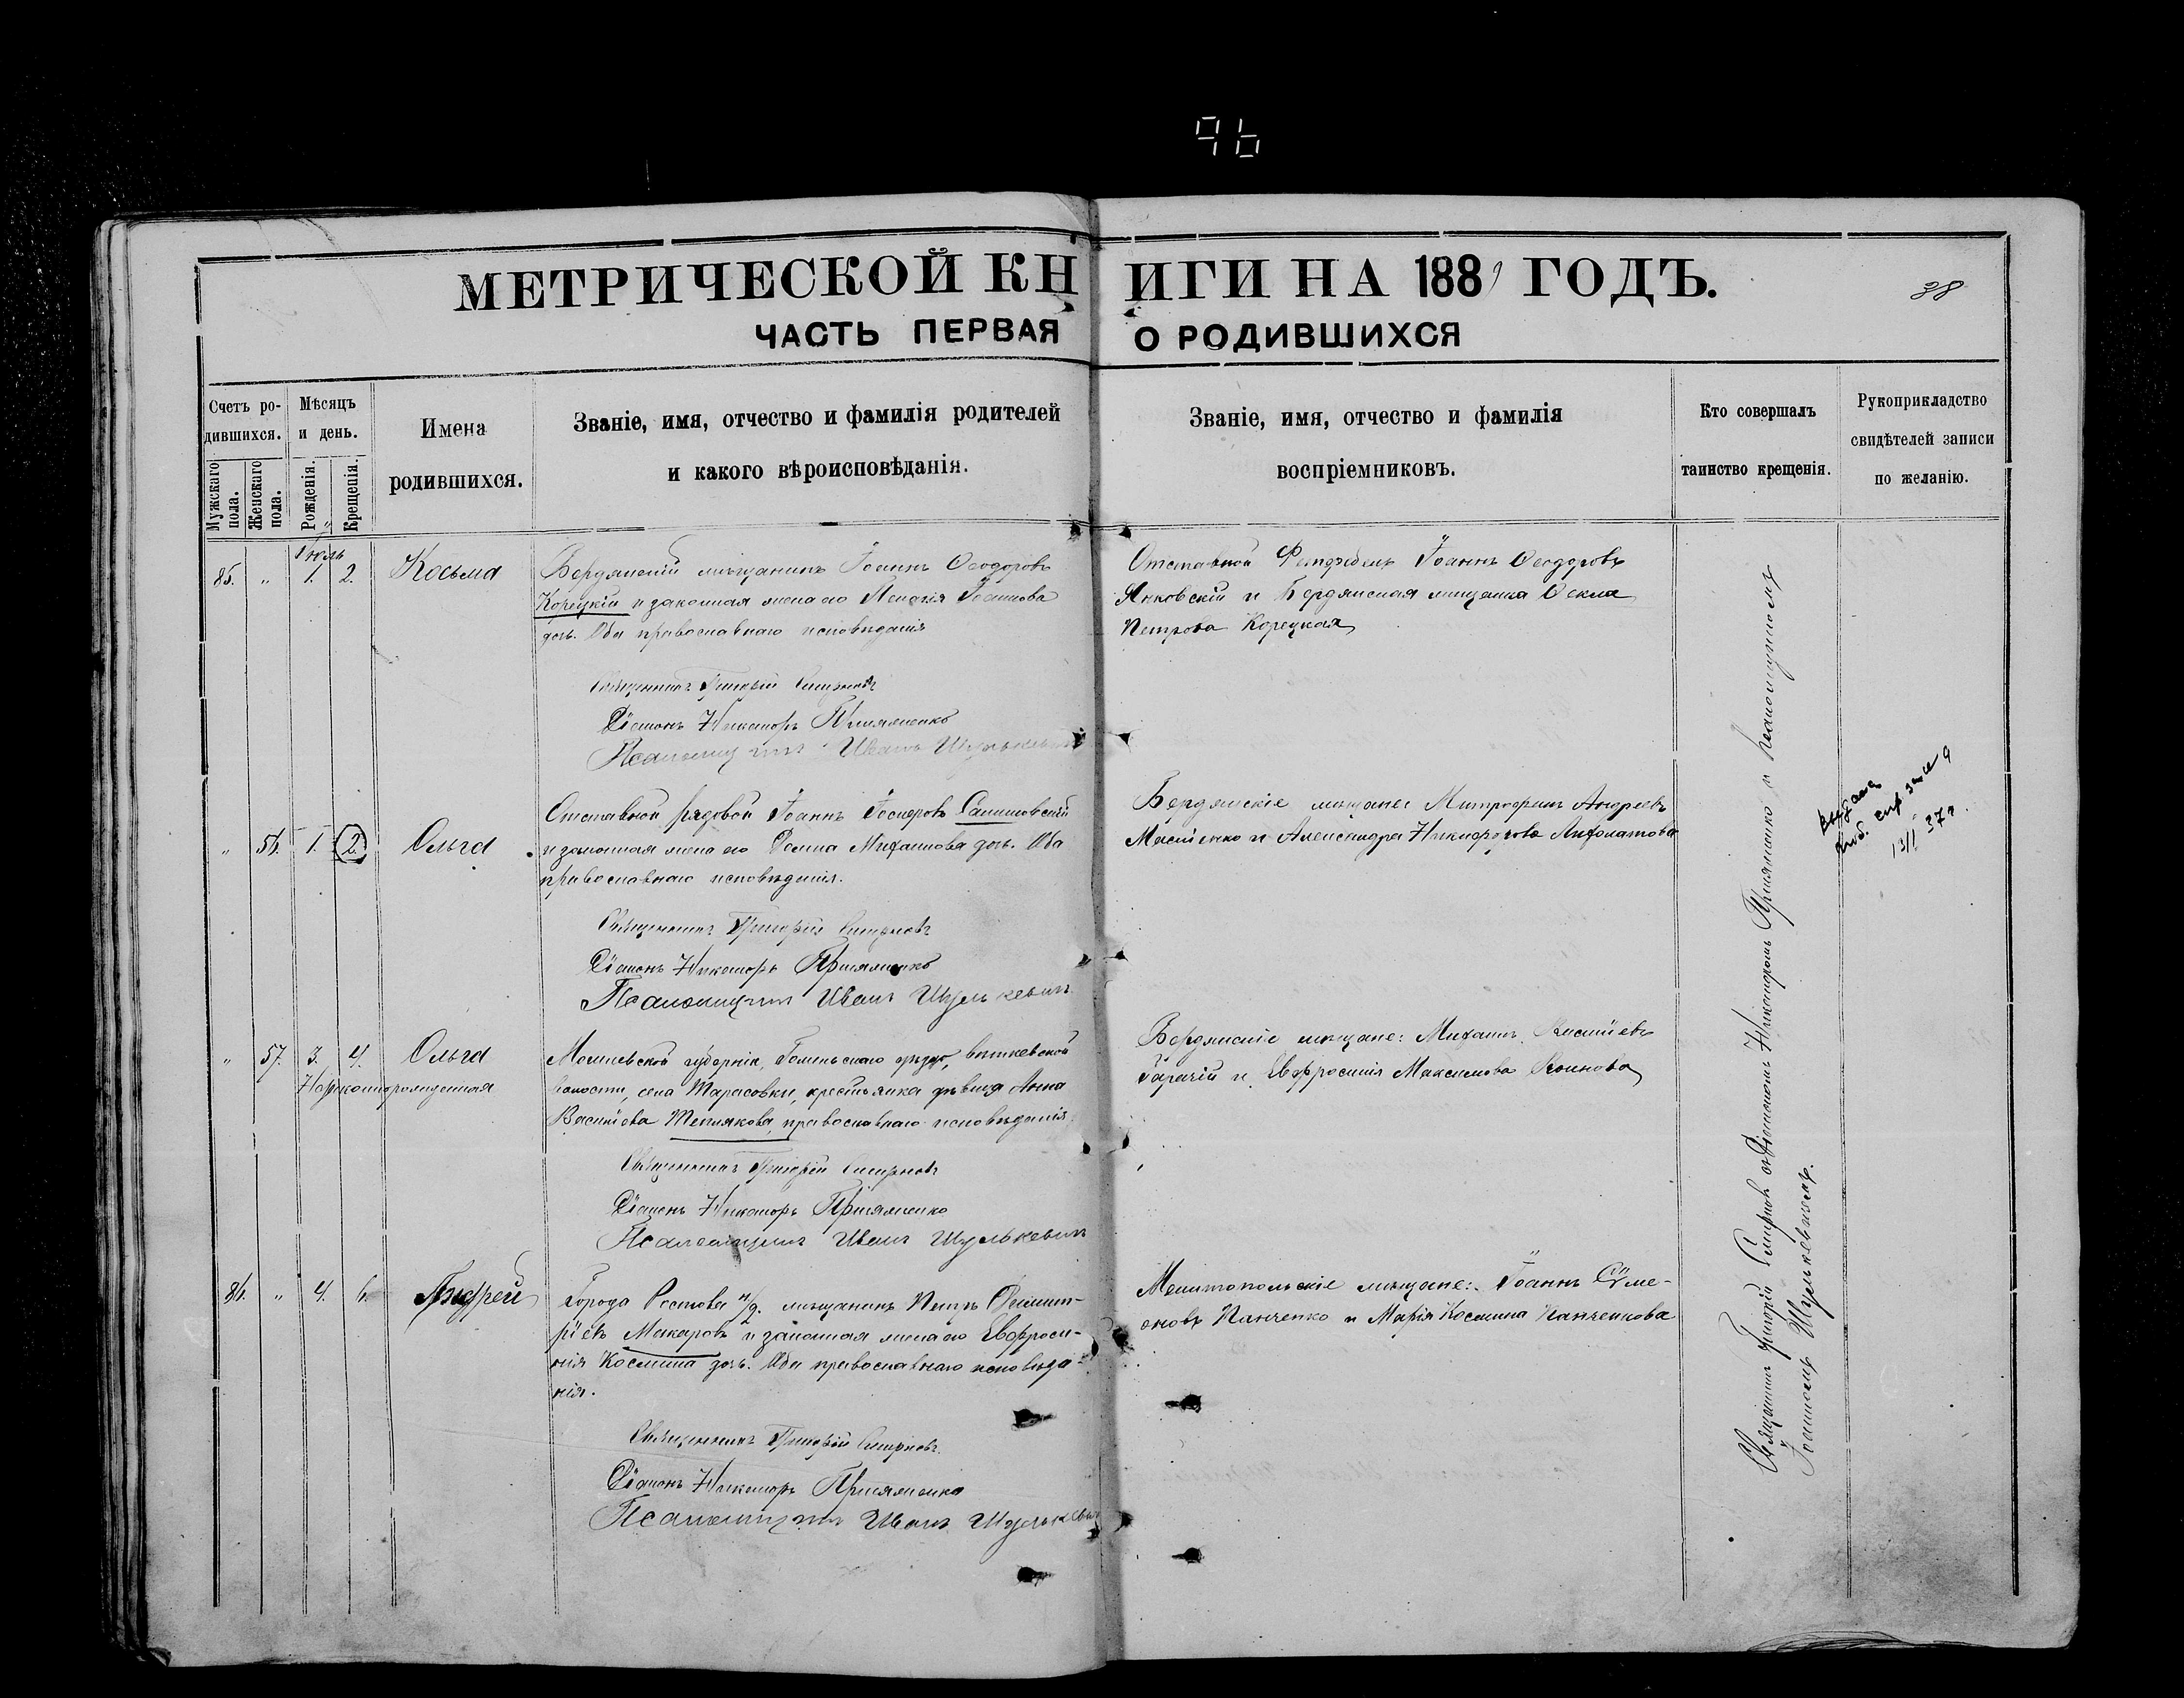 96
МЕТРИЧЕСКОЙ КНИГИ НА 1889 ГОДЪ.
38
ЧАСТЬ ПЕРВАЯ О РОДИВШИХСЯ
Счетъ ро-
дившихся.
Мужскаго
пола.
Женскаго
пола.
Мѣсяцъ
и день.
Рожденія.
Крещенія.
Имена
родившихся.
Званіе, имя, отчество и фамилія родителей
и какого вѣроисповѣданія.
Званіе, имя, отчество и фамилія
воспріемниковъ.
Кто совершалъ
таинство крещенія.
Рукоприкладство
свидѣтелей записи
по желанію.
Іюль
85. " 1. 2. Косьма
Бердянскій мѣщанинъ Іоаннъ Ѳеодоровъ
Корецкій и законная жена его Іоаннова
дочь. Оба православнаго исповѣданія
Священникъ Григорій Смирновъ
Діаконъ Никаноръ Присяженко
Псаломщикъ Иванъ Шулькевичъ
Отставной Фельдфебель Іоаннъ Ѳеодоровъ
Янковскій и Бердянская мѣщанка Ѳекла
Петрова Корецкая
" 56. 1. 2. Ольга
Отставной рядовой Іоаннъ Іосифовъ
и законная жена его Михаилова дочь. Оба
православнаго исповѣданія.
Священникъ Григорій Смирновъ
Діаконъ Никаноръ Присяженко
Псаломщикъ Иванъ Шулькевичъ
Бердянскіе мѣщане: Митрофанъ Андреевъ
и Александра Никифорова
выдана
13/II 37 г.
" 57. 3. 4. Ольга
Незаконнорожденная
Могилевской губерніи, Гомельскаго уѣзда, Вѣтковской
волости, села Тарасовки, крестьянка дѣвица Анна
Васильева Теплякова, православнаго исповѣданія.
Священникъ Григорій Смирновъ
Діаконъ Никаноръ Присяженко
Псаломщикъ Иванъ Шулькевичъ
Бердянскіе мѣщане: Михаилъ
Горячій и Евфросинія Максимова
86. " 4. 6. Андрей
Города Ростова н/Д. мѣщанинъ Петръ Димит-
ріевъ Макаровъ и законная жена его Евфроси-
нія Космина дочь. Оба православнаго исповѣда-
нія.
Священникъ Григорій Смирновъ.
Діаконъ Никаноръ Присяженко
Псаломщикъ Иванъ Шулькевичъ
Мелитопольскіе мѣщане: Іоаннъ Сѵме-
оновъ Панченко и Марія Космина Панченкова
Священникъ Григорій Смирновъ съ Діакономъ Никаноромъ Присяженко и псаломщикомъ
Іоанномъ Шулькевичемъ.